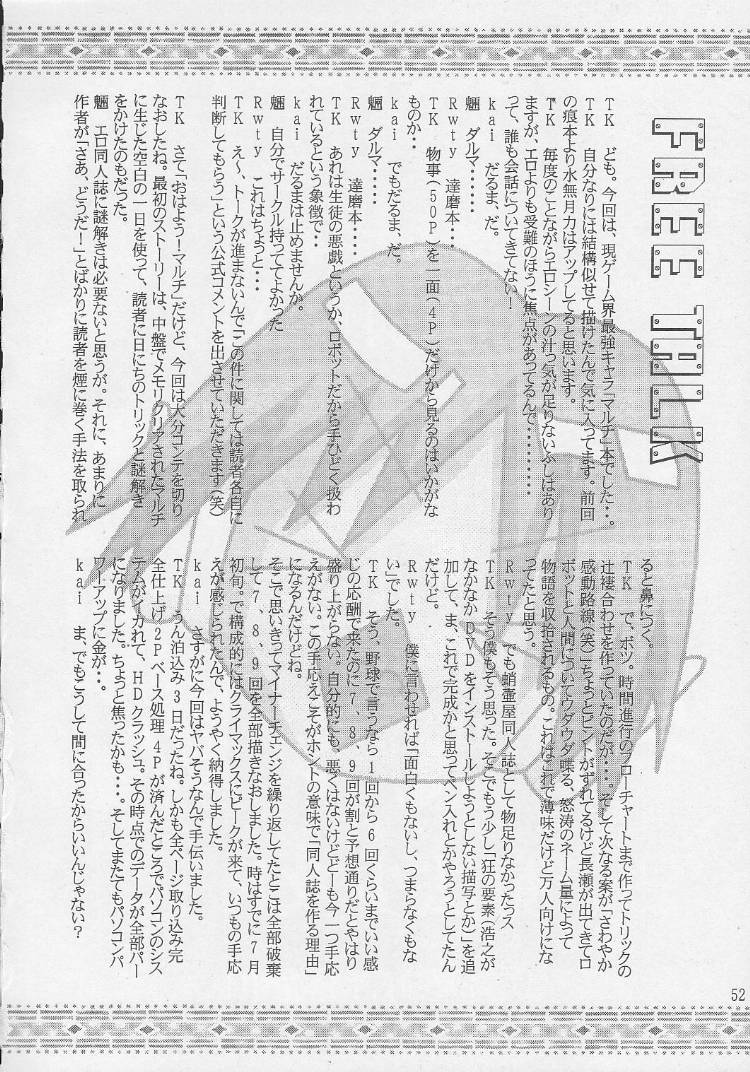 FREE TALK
TK　ども。今回は、現ゲーム界最強キャラ「マルチ」本でした・・。
TK　自分なりには結構似せて描けたんで気に入ってます。前回
の痕本より水無月力はアップしてると思います。
TK　毎度のことながらエロシーンの汁っ気が足りないふしはあり
ますが、エロよりも受難のほうに焦点があってるんで・・・・・・・
って、誰も会話についてきてない！
kai　だるま、だ。
魎　ダルマ・・・・・
Rwty　達磨本・・・・
TK　物事（50P）を一面（4P）だけから見るのはいかがな
ものか・・
kai　でもだるま、だ。
魎　ダルマ・・・・・
Rwty　達磨本・・・・
TK　あれは生徒の悪戯というか、ロボットだから手ひどく扱わ
れているという象徴で・・
kai　だるまは止めませんか。
魎　自分でサークル持っててよかった
Rwty　これはちょっと・・・
TK　え～、トークが進まないんで「この件に関しては読者各自に
判断してもらう」という公式コメントを出させていただきます（笑）
TK　さて「おはよう！マルチ」だけど、今回は大分コンテを切り
なおしたね。最初のストーリーは、中盤でメモリクリアされたマルチ
に生じた空白の一日を使って、読者に日にちのトリックと謎解き
をかけたのもだった。
魎　エロ同人誌に謎解きは必要ないと思うが。それに、あまりに
作者が「さあ、どうだ！」とばかりに読者を煙に巻く手法を取られ
ると鼻につく。
TK　で、ボツ。時間進行のフローチャートまで作ってトリックの
辻褄合わせを作っていたのだが・・・。そして次なる案が「さわやか
感動路線（笑）」ちょっとピントがずれてるけど長瀬が出てきてロ
ボットと人間についてウダウダ喋る、怒涛のネーム量によって
物語を収拾されるもの。これはこれで薄味だけど万人向けにな
ってたと思う。
Rwty　でも蛸壷屋同人誌として物足りなかったっス
TK　そう僕もそう思った。そこでもう少し「狂の要素（浩之が
なかなかDVDをインストールしようとしない描写とか）」を追
加して、ま、これで完成かと思ってペン入れとかやろうとしてたん
だけど。
Rwty　僕に言わせれば「面白くもないし、つまらなくもな
い」でした。
TK　そう、野球で言うなら1回から6回くらいまでいい感
じの応酬で来たのに7、8、9回が割と予想通りだとやはり
盛り上がらない。自分的にも。悪くはないけどどーも今一つ手応
えがない。この手応えこそがホントの意味で「同人誌を作る理由」
になるんだけどね。
そこで思いきってマイナーチェンジを繰り返してたとこは全部破棄
して7、8、9回を全部描きなおしました。時はすでに7月
初旬。で構成的にはクライマックスにピークが来て、いつもの手応
えが感じられたんで、ようやく納得しました。
kai　さすがに今回はヤバそうなんで手伝いました。
TK　うん泊込み3日だったね。しかも全ページ取り込み完
全仕上げ2Pベース処理4Pが済んだところでパソコンのシス
テムがイカれて、HDクラッシュ。その時点でのデータが全部パー
になりました。ちょっと焦ったかも・・・。そしてまたてもパソコンパ
ワーアップに金が・・。
kai　ま、でもこうして間に合ったからいいんじゃない？
52